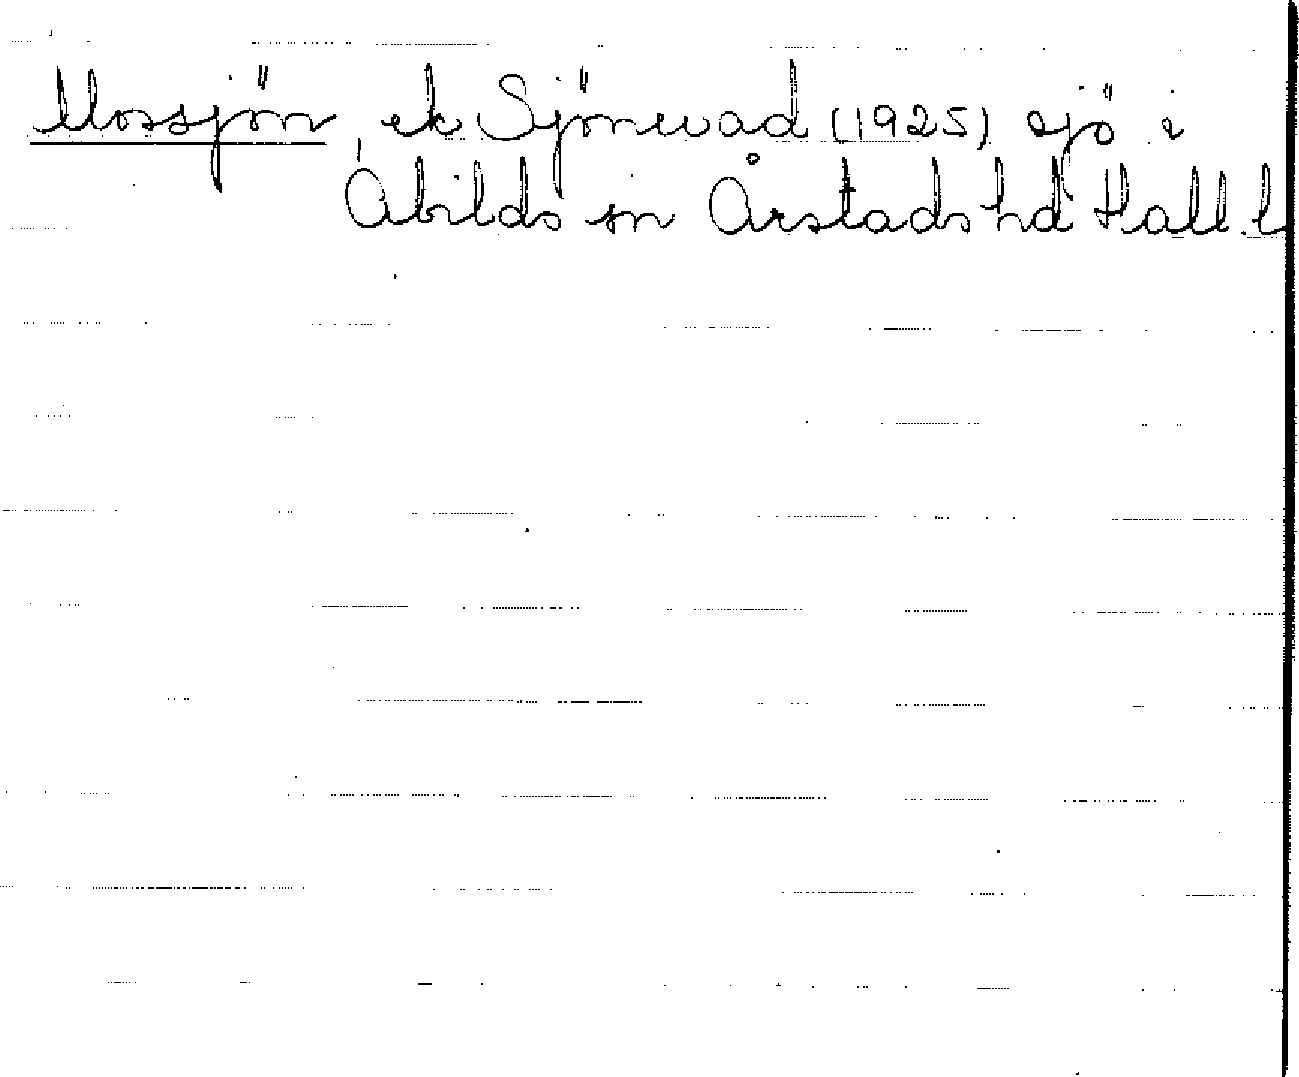 Mossjön, ek Sjönevad (1925) sjö i
Abilds sn Årstads hd Hall l